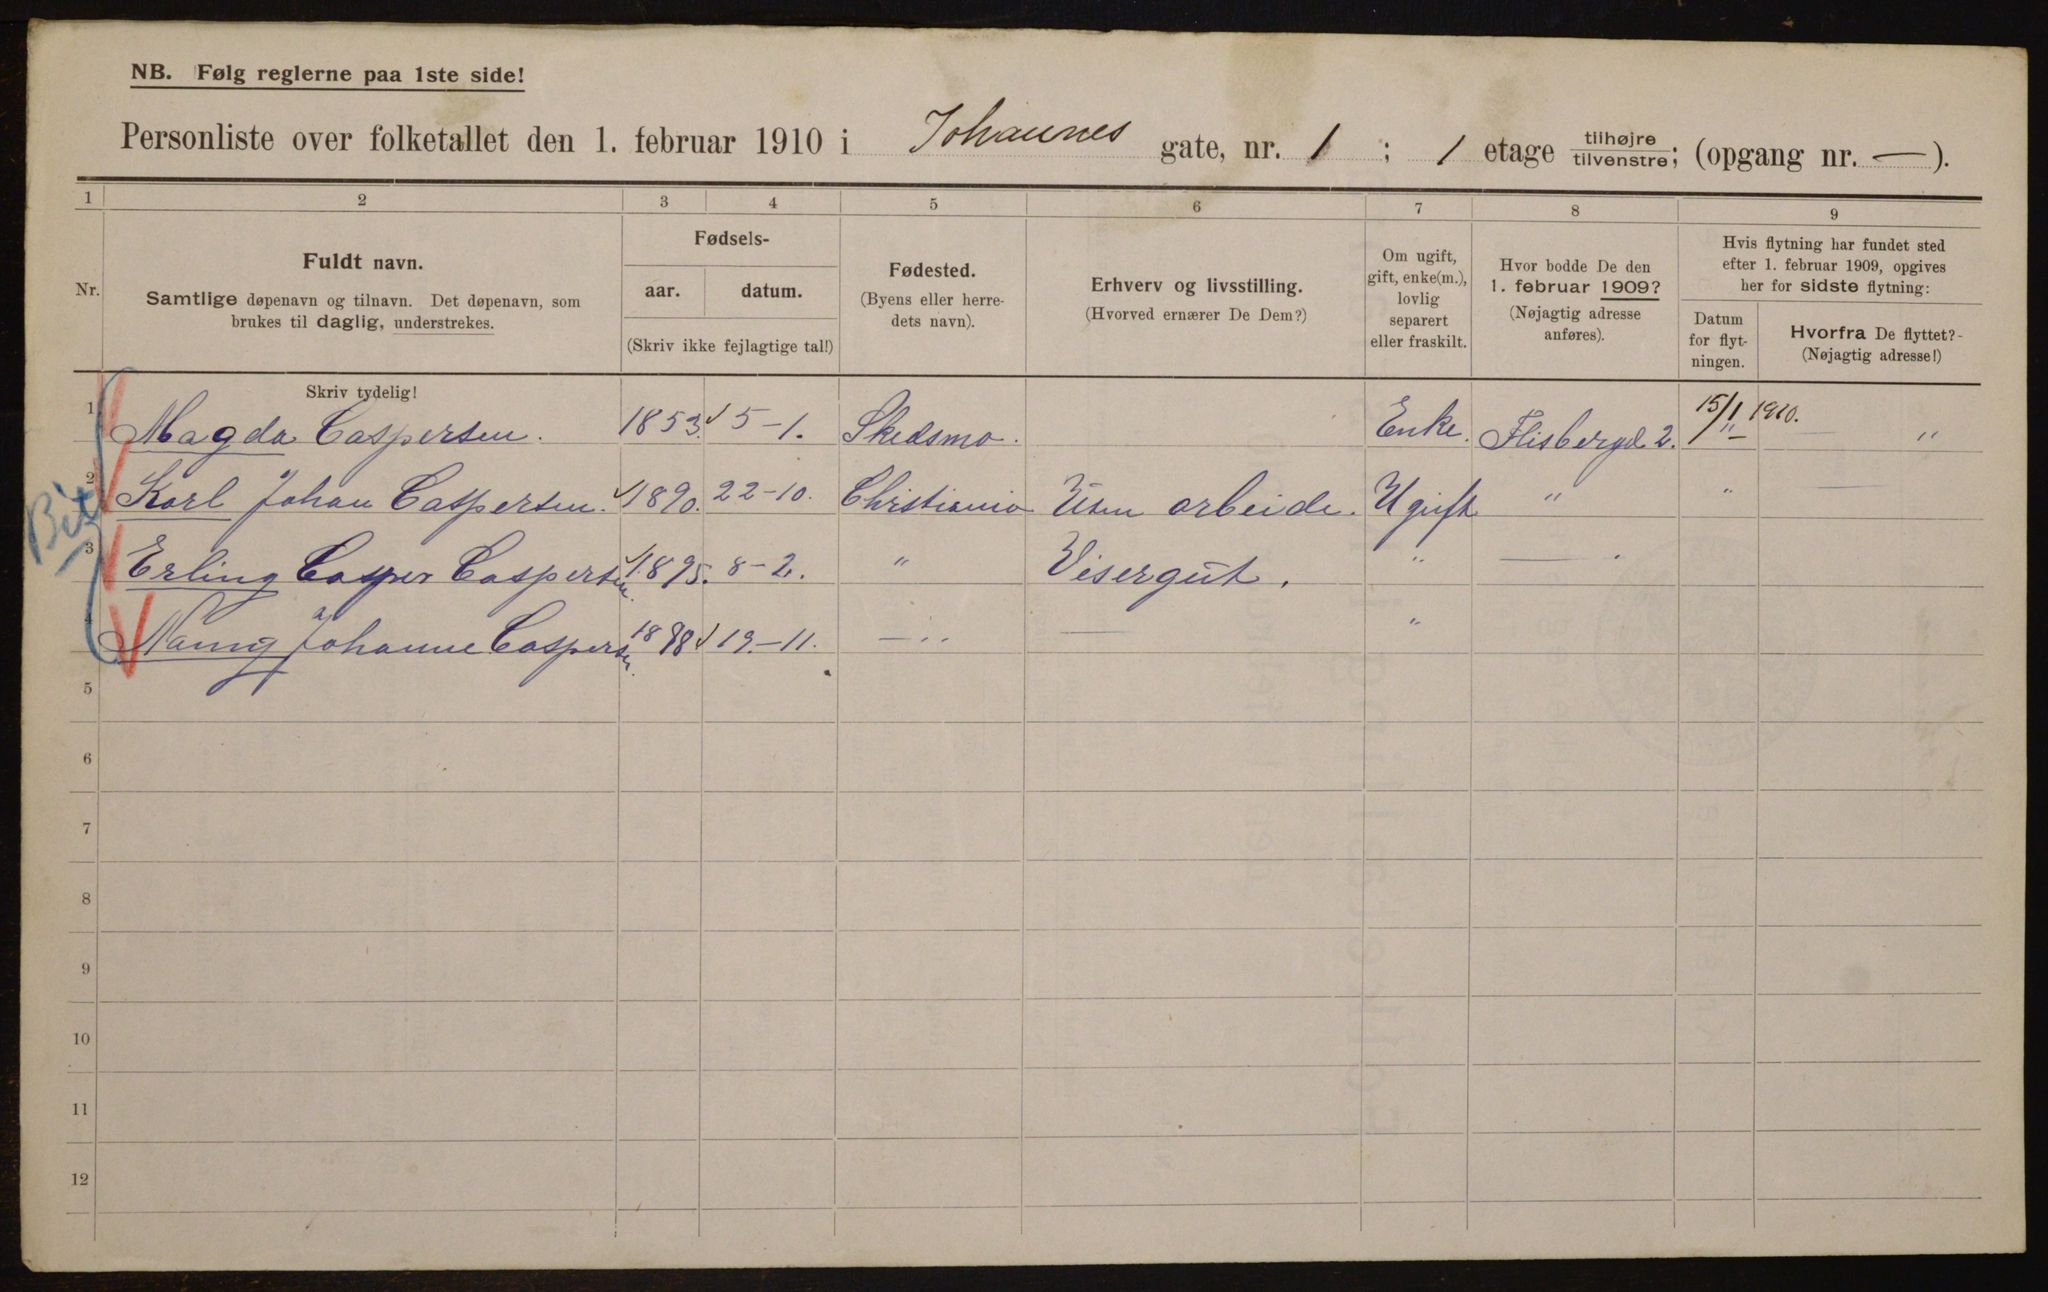 NB. Følg reglerne paa 1ste side!
Personliste over folketallet den 1. februar 1910 i Johannes gate, nr. 1 ; 1 etage tilhøjre/tilvenstre; (opgang nr. — ).
1 2 3 4 5 6 7 8 9
Nr.
Fuldt navn.
Samtlige døpenavn og tilnavn. Det døpenavn, som
brukes til daglig, understrekes.
Skriv tydelig!
Fødsels-
aar. datum.
(Skriv ikke fejlagtige tal!)
Fødested.
(Byens eller herre-
dets navn).
Erhverv og livsstilling.
(Hvorved ernærer De Dem?)
Om ugift,
gift, enke(m.),
lovlig
separert
eller fraskilt.
Hvor bodde De den
1. februar 1909?
(Nøjagtig adresse
anføres).
Hvis flytning har fundet sted
efter 1. februar 1909, opgives
her for sidste flytning:
Datum
for flyt-
ningen.
Hvorfra De flyttet?
(Nøjagtig adresse!)
1 Magda Caspersen. 1853. 5-1. Skedsmo. Enke. Flisbergd 2. 15/1 1910. — "
2 Karl Johan Caspersen. 1890. 22-10. Christiania Uten arbeide. Ugift " " —
3 Erling Casper Caspersen. 1895. 8-2. " Visergut. " — "
4 Nanny Johanne Caspersen. 1898 19.-11. — " — "
5
6
7
8
9
10
11
12